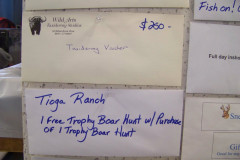 Wild Arts
Taxidermy Studio
$250-
Taxidermy Voucher
Fish on! C
Full day instru
Tioga Ranch
1 Free Trophy Boar Hunt w/ Purchase
of 1 Trophy Boar Hunt